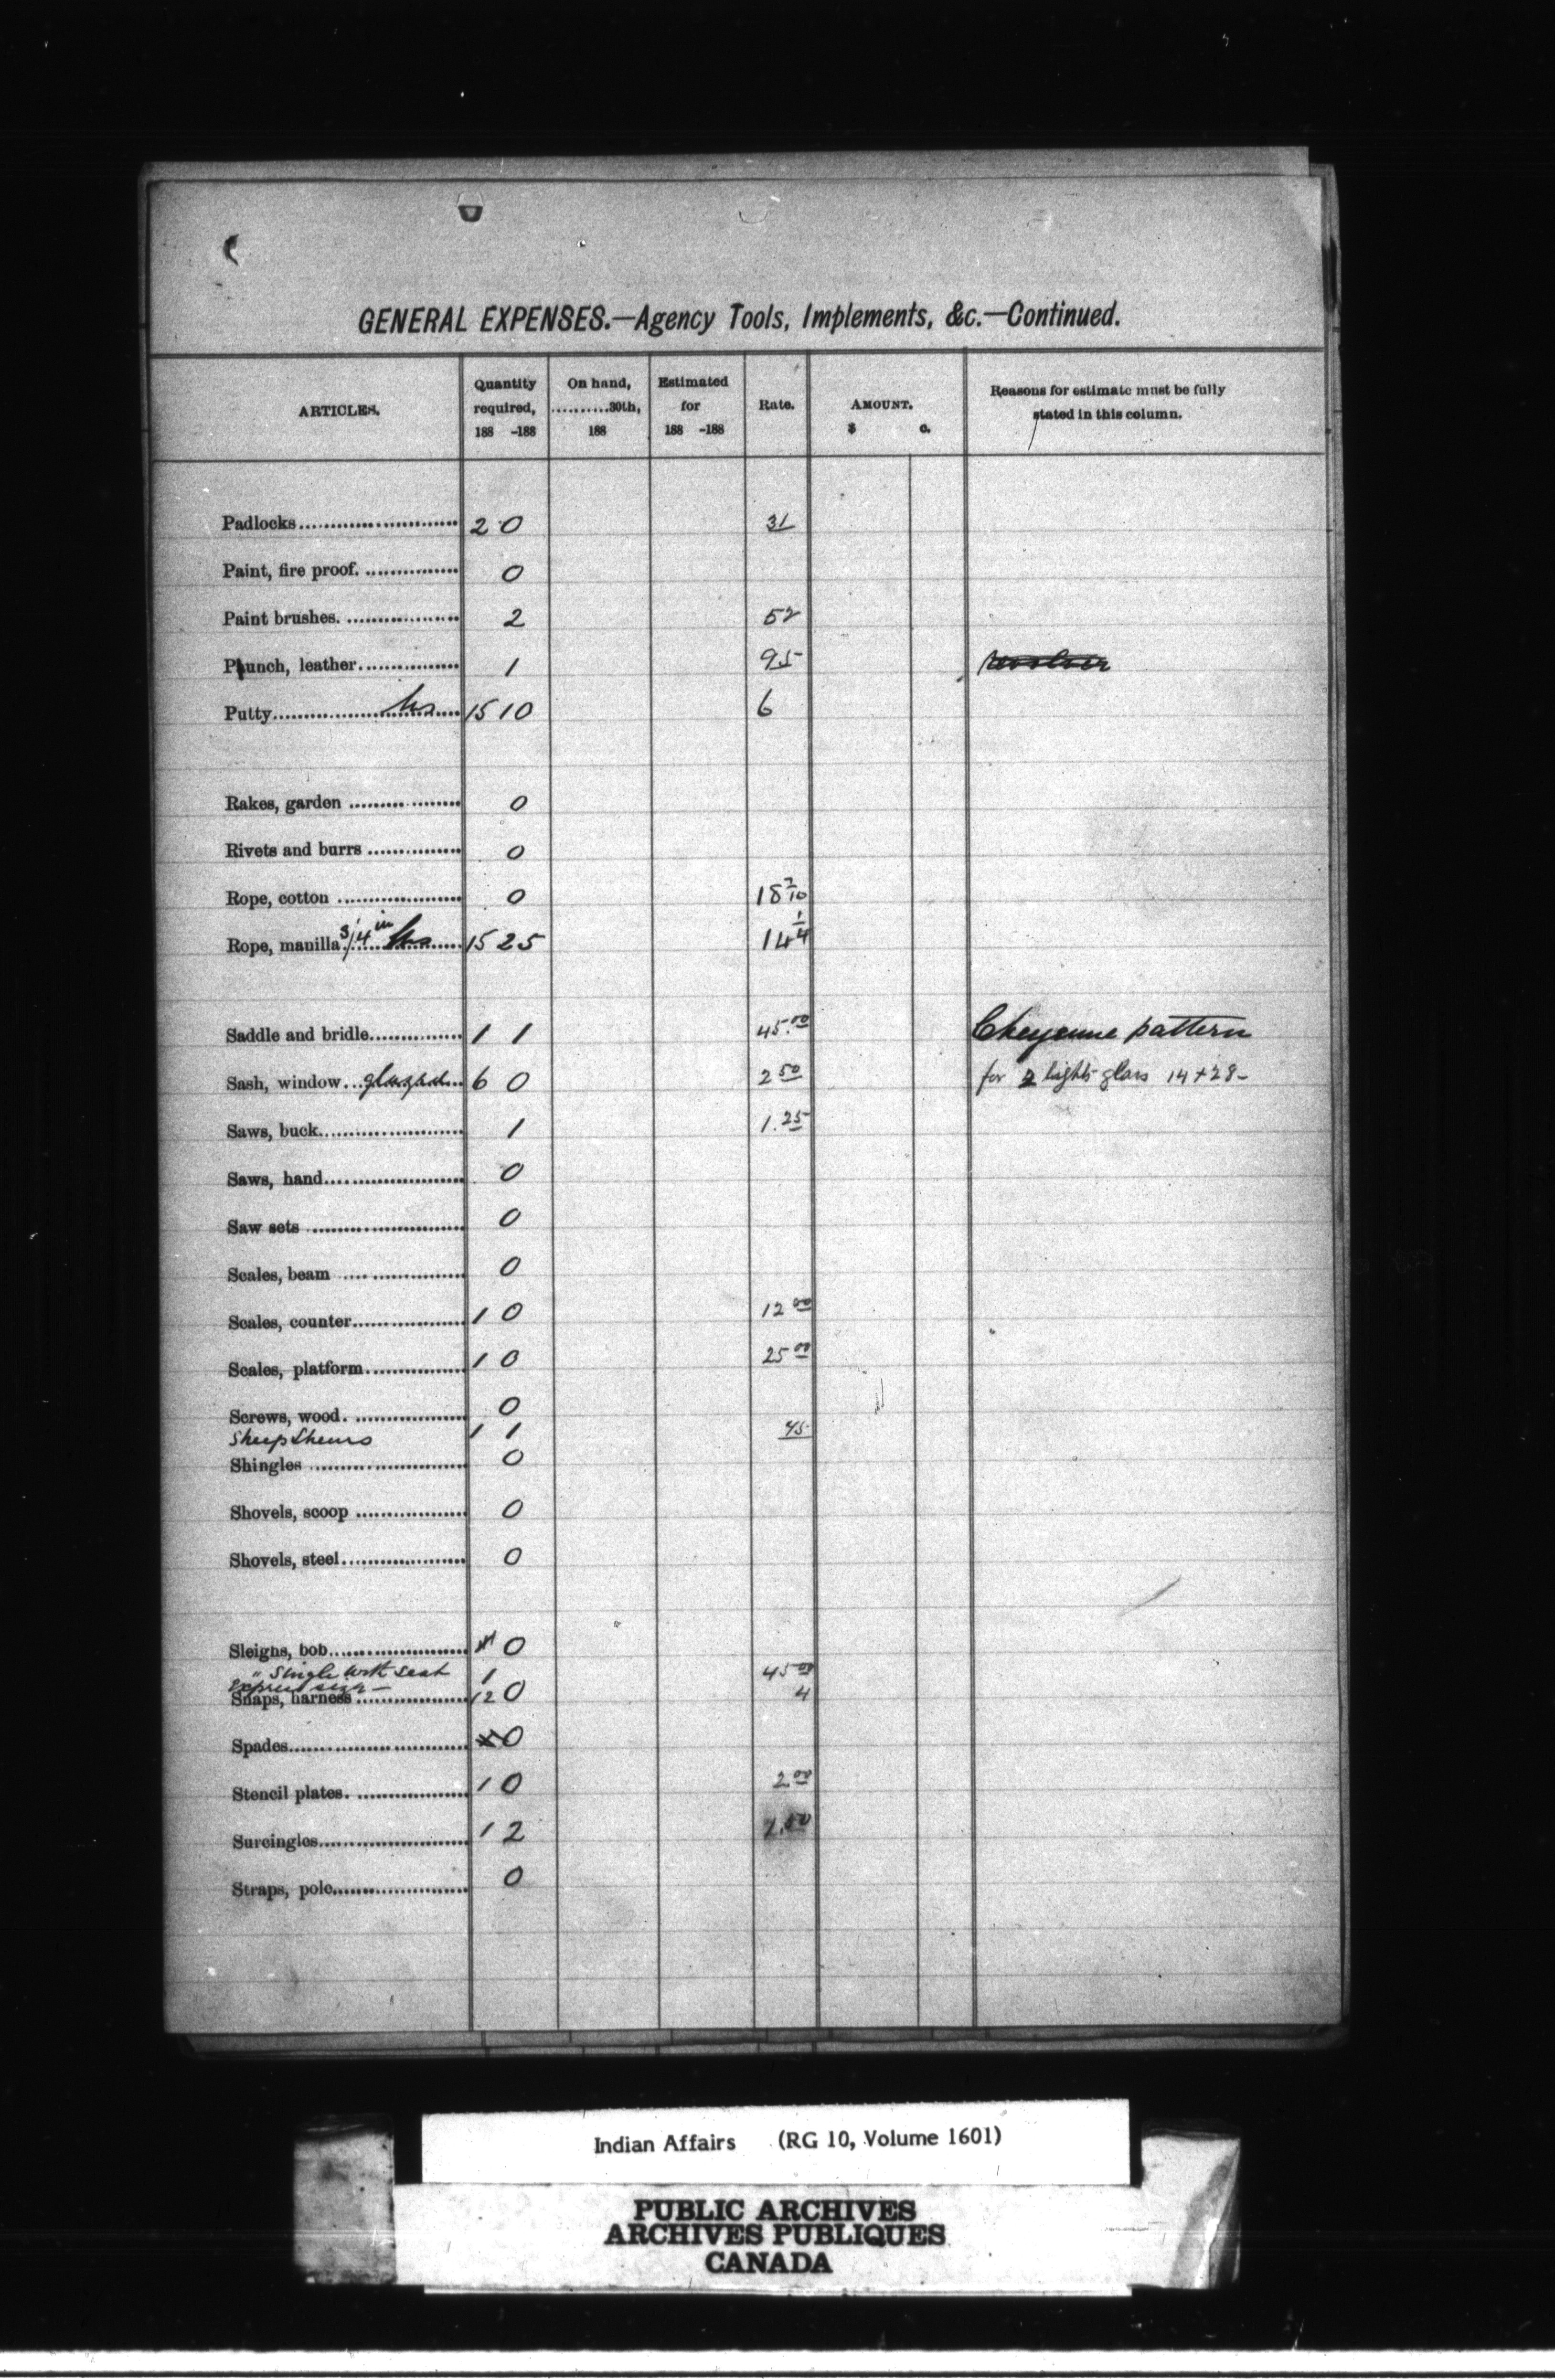 GENERAL EXPENSES.—Agency Tools, Implements, &c.—Continued.
ARTICLES. Quantity required, 188 -188 On hand, ..........30th, 188 Estimated for 188 -188 Rate. AMOUNT. $ c. Reasons for estimate must be fully stated in this column.
Padlocks 20 31
Paint, fire proof. 0
Paint brushes. 2 52
Punch, leather 1 95
Putty lbs 15 10 6
Rakes, garden 0
Rivets and burrs 0
Rope, cotton 0 18 7/10
Rope, manilla 3/4 in lbs 15 25 14 1/4
Saddle and bridle 1 1 45.00 Cheyenne pattern
Sash, window glazed 6 0 2 50 for 2 lights glass 14+28-
Saws, buck 1 1.25
Saws, hand 0
Saw sets 0
Scales, beam 0
Scales, counter 1 0 12 00
Scales, platform 1 0 25 00
Screws, wood. 0
Sheep Shears 1 1 45
Shingles 0
Shovels, scoop 0
Shovels, steel 0
Sleighs, bob 0
" Single with seat 1 45 00
Express
Snaps, harness 12 0 4
Spades 0
Stencil plates. 1 0 2 00
Surcingles 1 2 2.50
Straps, pole 0
Indian Affairs (RG 10, Volume 1601)
PUBLIC ARCHIVES
ARCHIVES PUBLIQUES
CANADA